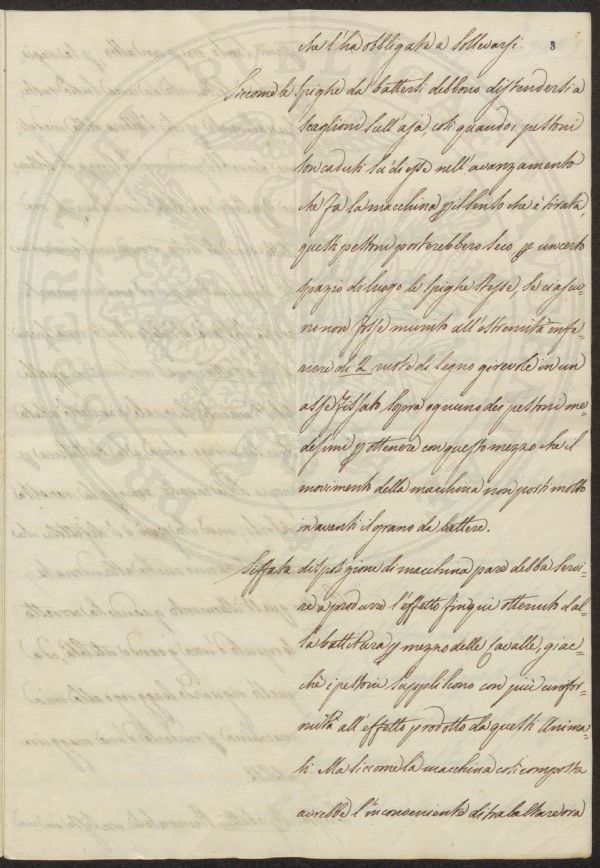 3
che l'ha obbligate a sollevarsi.
Siccome le spighe da battersi debbono distendersi a
scaglioni sull'aja così quando i pestoni
son caduti su di esse nell'avanzamento
che fa la macchina pel lento che è tirata,
questi pestoni porterebbero seco p un certo
spazio di luogo le spighe stesse, se ciascu-
no non fosse munito all'estremità infe-
riore di 2 ruote di legno girevole in un
asse fissato sopra ognuno dei pestoni me-
desimi p ottenere con questo mezzo che il
movimento della macchina non porti molto
in avanti il grano da battere.
Siffata disposizione di macchina pare debba servi-
re a produrre l'effetto finqui ottenuto dal-
la battitura p mezzo delle Cavalle, giac-
chè i pestoni suppliscono con più unifor-
mità all'effetto prodotto da questi Anima-
li. Ma siccome la macchina così composta
avrebbe l'inconveniente di tralasciare ora